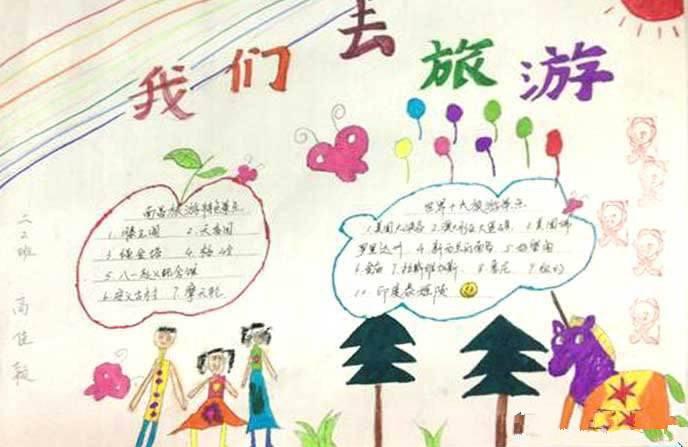 我们去旅游
南昌旅游特色景点
1.滕王阁 2.天香园
3.绳金塔 4.梅岭
5.八一起义纪念馆
6.安义古村 7.摩天轮
世界十大旅游景点
1.美国大峡谷 2.澳大利亚大堡礁 3.美国佛
罗里达州 4.新西兰南岛 5.好望角
6.金庙 7.拉斯维加斯 8.悉尼 9.纽约
10.印度泰姬陵
二2班
高佳毅